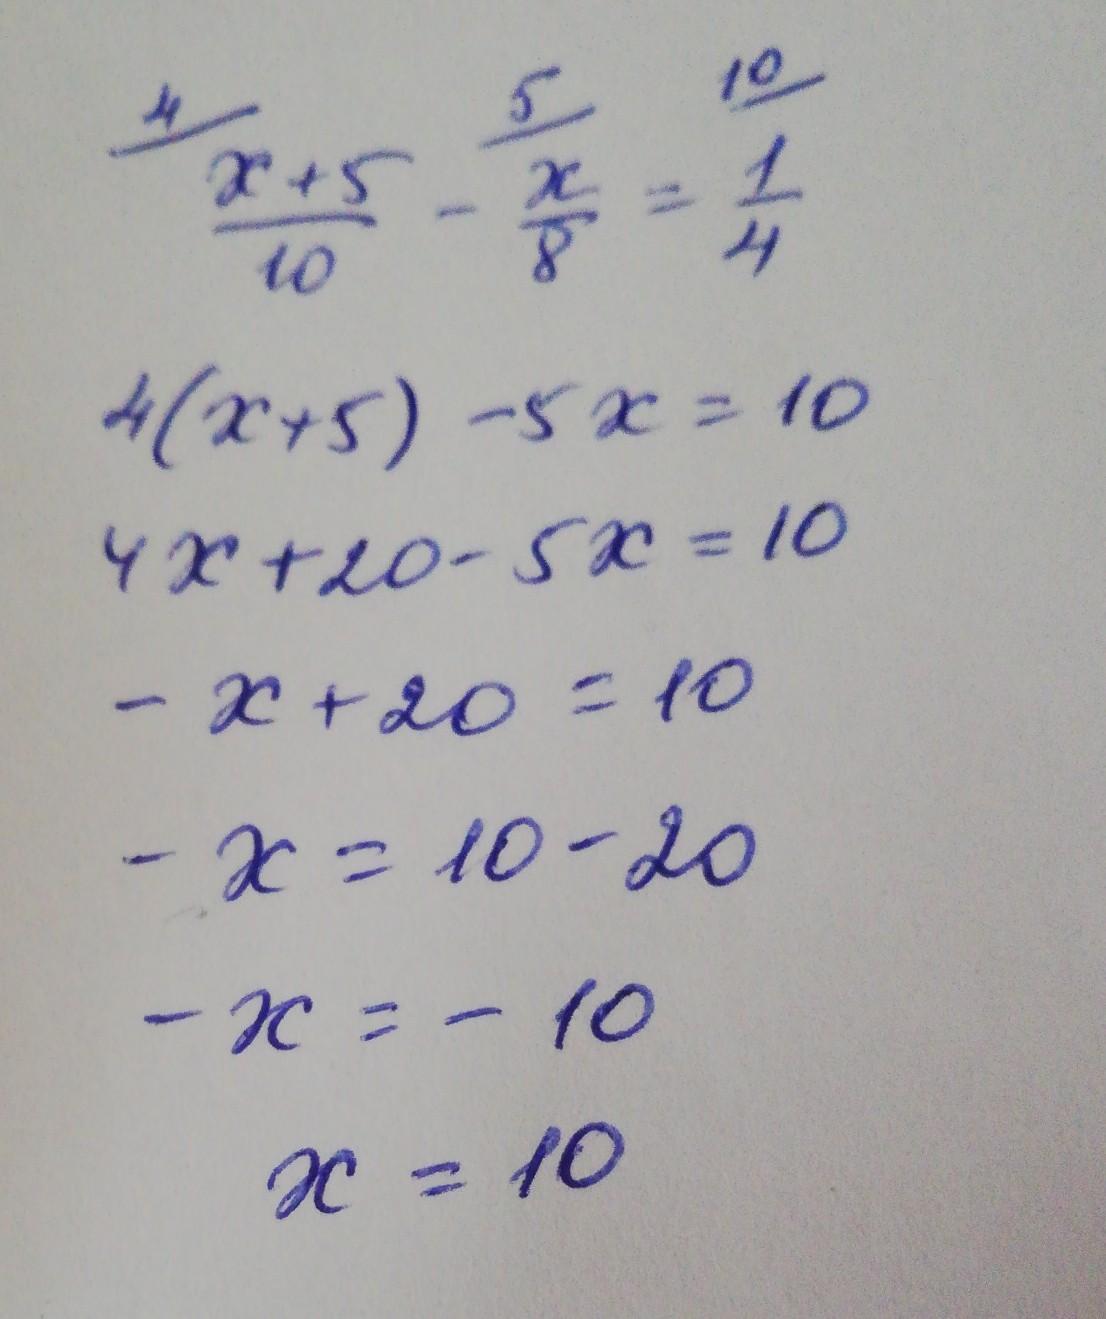 4 5 10
x+5/10 - x/8 = 1/4
4(x+5) -5x = 10
4x+20-5x=10
-x+20=10
-x=10-20
-x=-10
x=10